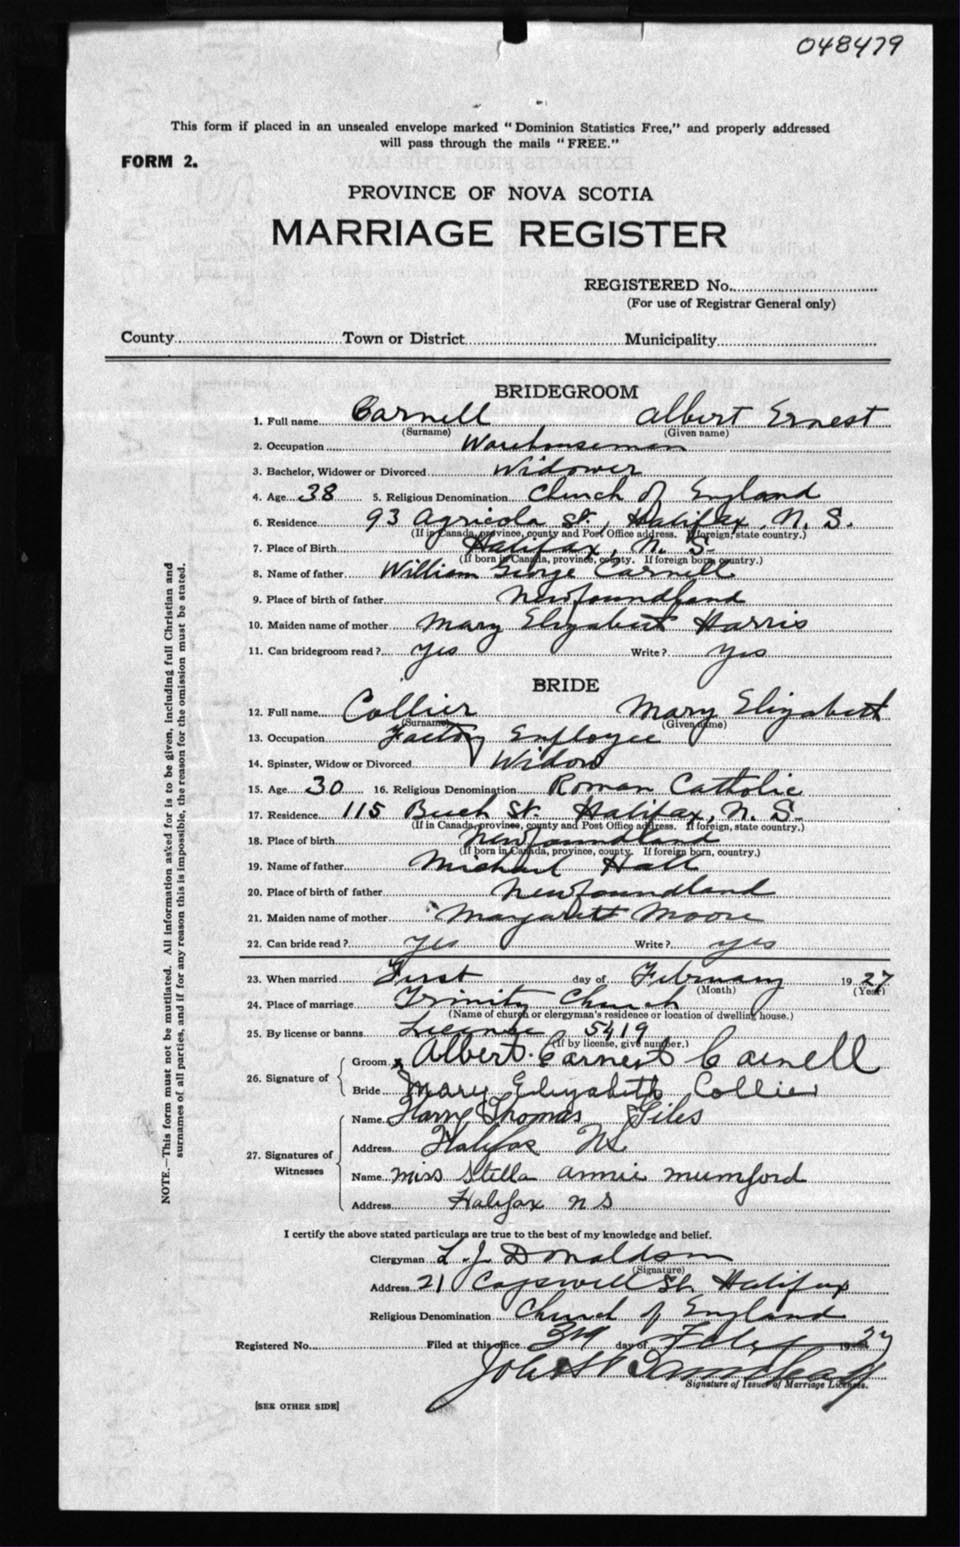 048479
This form if placed in an unsealed envelope marked "Dominion Statistics Free," and properly addressed
will pass through the mails "FREE."
FORM 2.
PROVINCE OF NOVA SCOTIA
MARRIAGE REGISTER
REGISTERED No.
(For use of Registrar General only)
County Town or District Municipality
BRIDEGROOM
1. Full name Carnell Albert Ernest
(Surname) (Given name)
2. Occupation Warehouseman
3. Bachelor, Widower or Divorced Widower
4. Age 38 5. Religious Denomination Church of England
6. Residence 93 Agricola St., Halifax, N. S.
(If in Canada, province, county and Post Office address. If foreign, state country.)
7. Place of Birth Halifax, N. S.
(If born in Canada, province, county. If foreign born, country.)
8. Name of father William George Carnell
9. Place of birth of father Newfoundland
10. Maiden name of mother Mary Elizabeth Harris
11. Can bridegroom read? Yes Write? Yes
BRIDE
12. Full name Collier Mary Elizabeth
(Surname) (Given name)
13. Occupation Factory Employee
14. Spinster, Widow or Divorced Widow
15. Age 30 16. Religious Denomination Roman Catholic
17. Residence 115 St. Halifax, N. S.
(If in Canada, province, county and Post Office address. If foreign, state country.)
18. Place of birth Newfoundland
(If born in Canada, province, county. If foreign born, country.)
19. Name of father Michael
20. Place of birth of father Newfoundland
21. Maiden name of mother Margarett Moore
22. Can bride read? Yes Write? Yes
23. When married First day of February 1927
(Month) (Year)
24. Place of marriage Trinity Church
(Name of church or clergyman's residence or location of dwelling house.)
25. By license or banns License 5419
(If by license, give number.)
26. Signature of
Groom x Albert Earnest Carnell
Bride Mary Elizabeth Collier
27. Signatures of Witnesses
Name Harry Thomas Giles
Address Halifax NS
Name Miss Stella Annie Mumford
Address Halifax N S
I certify the above stated particulars are true to the best of my knowledge and belief.
Clergyman L. J. Donaldson
(Signature)
Address 21 St. Halifax
Religious Denomination Church of England
Registered No. Filed at this office day of Feby 1927
Signature of Issuer of Marriage Licenses.
[SEE OTHER SIDE]
NOTE.—This form must not be mutilated. All information asked for is to be given, including full Christian and
surnames of all parties, and if for any reason this is impossible, the reason for the omission must be stated.